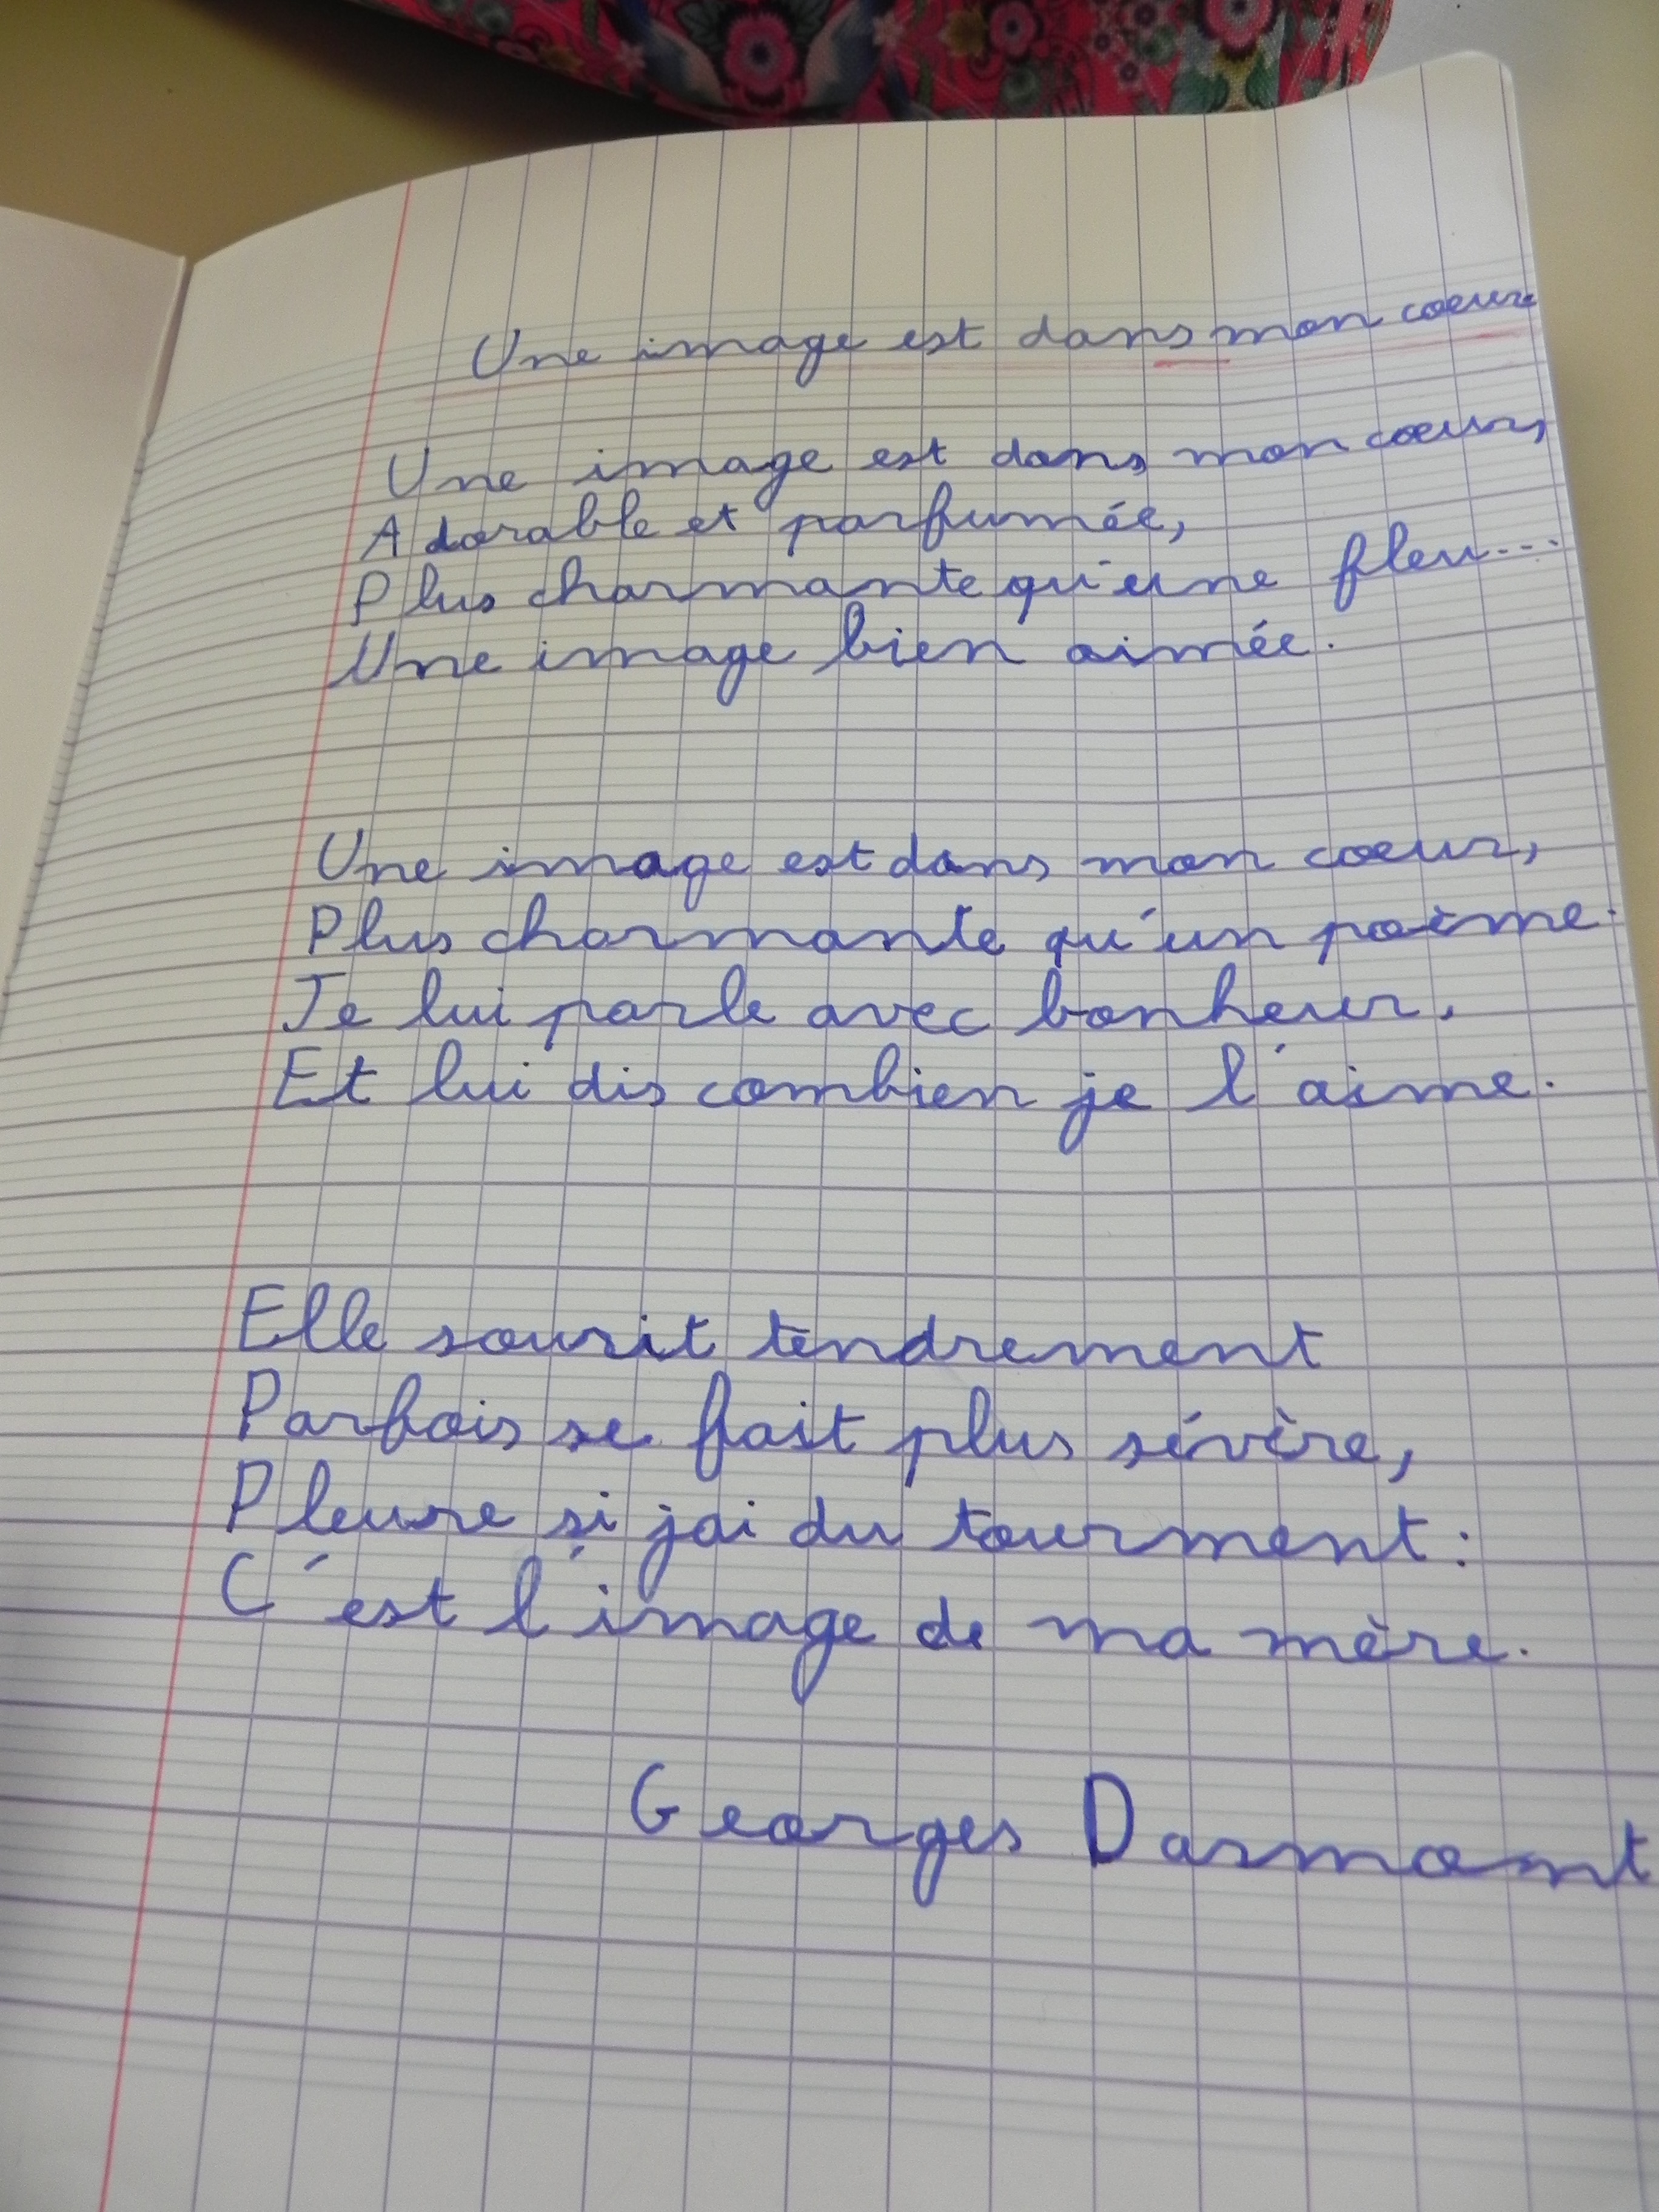 Une image est dans mon coeur
Une image est dans mon coeur,
Adorable et parfumée,
Plus charmante qu'une fleu...
Une image bien aimée.
Une image est dans mon coeur,
Plus charmante qu'un poème.
Je lui parle avec bonheur,
Et lui dis combien je l'aime.
Elle sourit tendrement
Parfois se fait plus sévère,
Pleure si jai du tourment :
C'est l'image de ma mère.
Georges Darmont